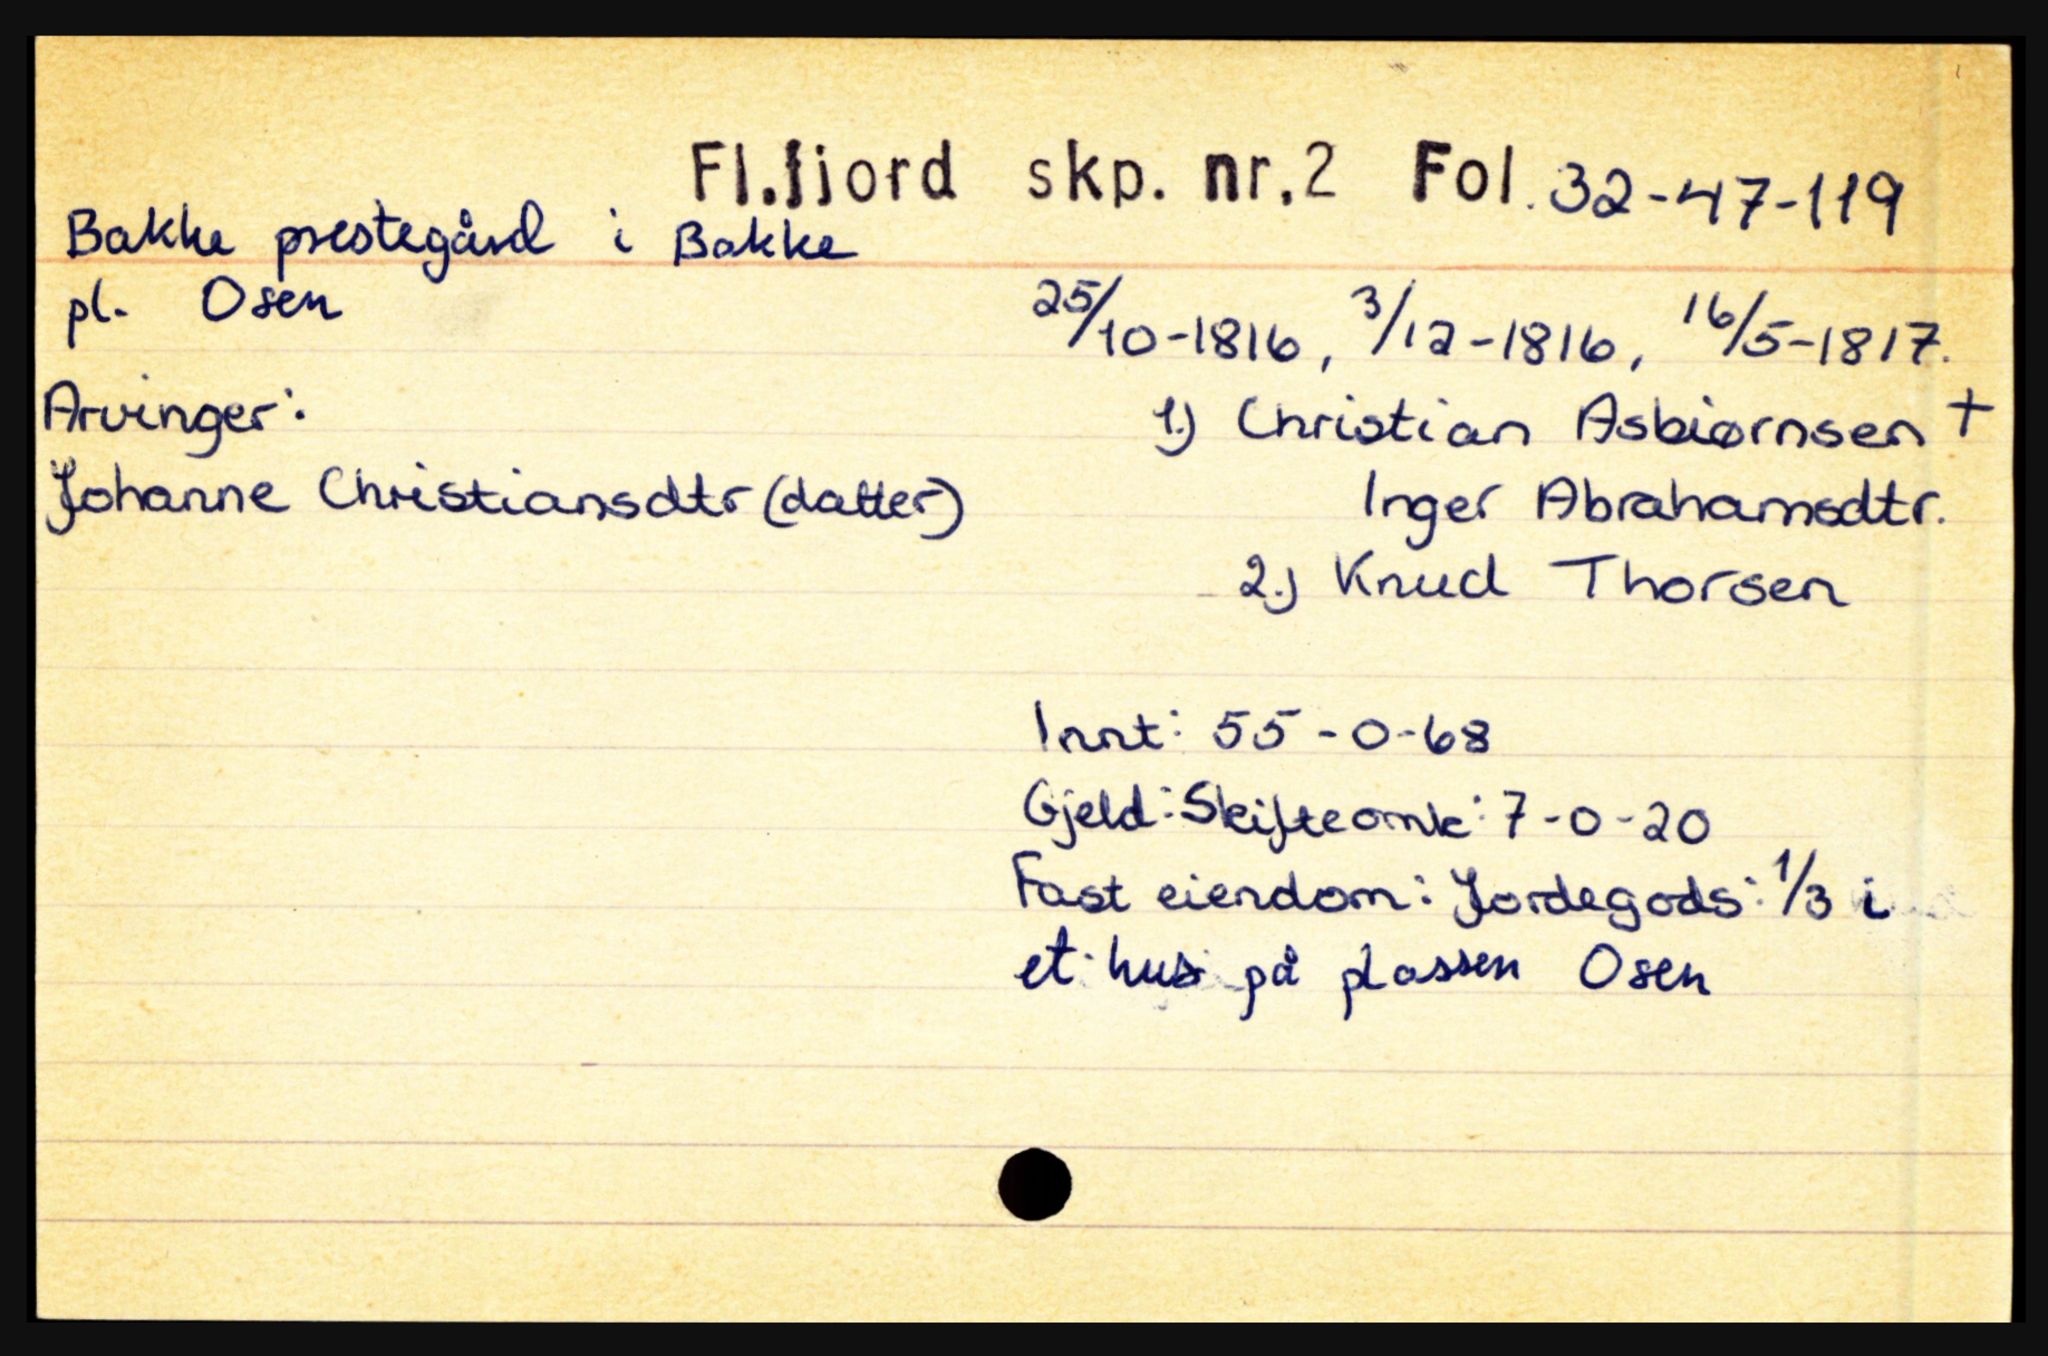 Fl.fjord skp. nr.2 Fol. 32-47-119
Bakke prestegård i Bakke
pl. Osen
25/10-1816, 3/12-1816, 16/5-1817.
Arvinger:
1.) Christian Asbiørnsen +
Johanne Christiansdtr (datter)
Inger Abrahamsdtr.
2.) Knud Thorsen
Innt: 55-0-68
Gjeld: Skifteomk: 7-0-20
Fast eiendom: Jordegods: 1/3 i
et hus på plassen Osen